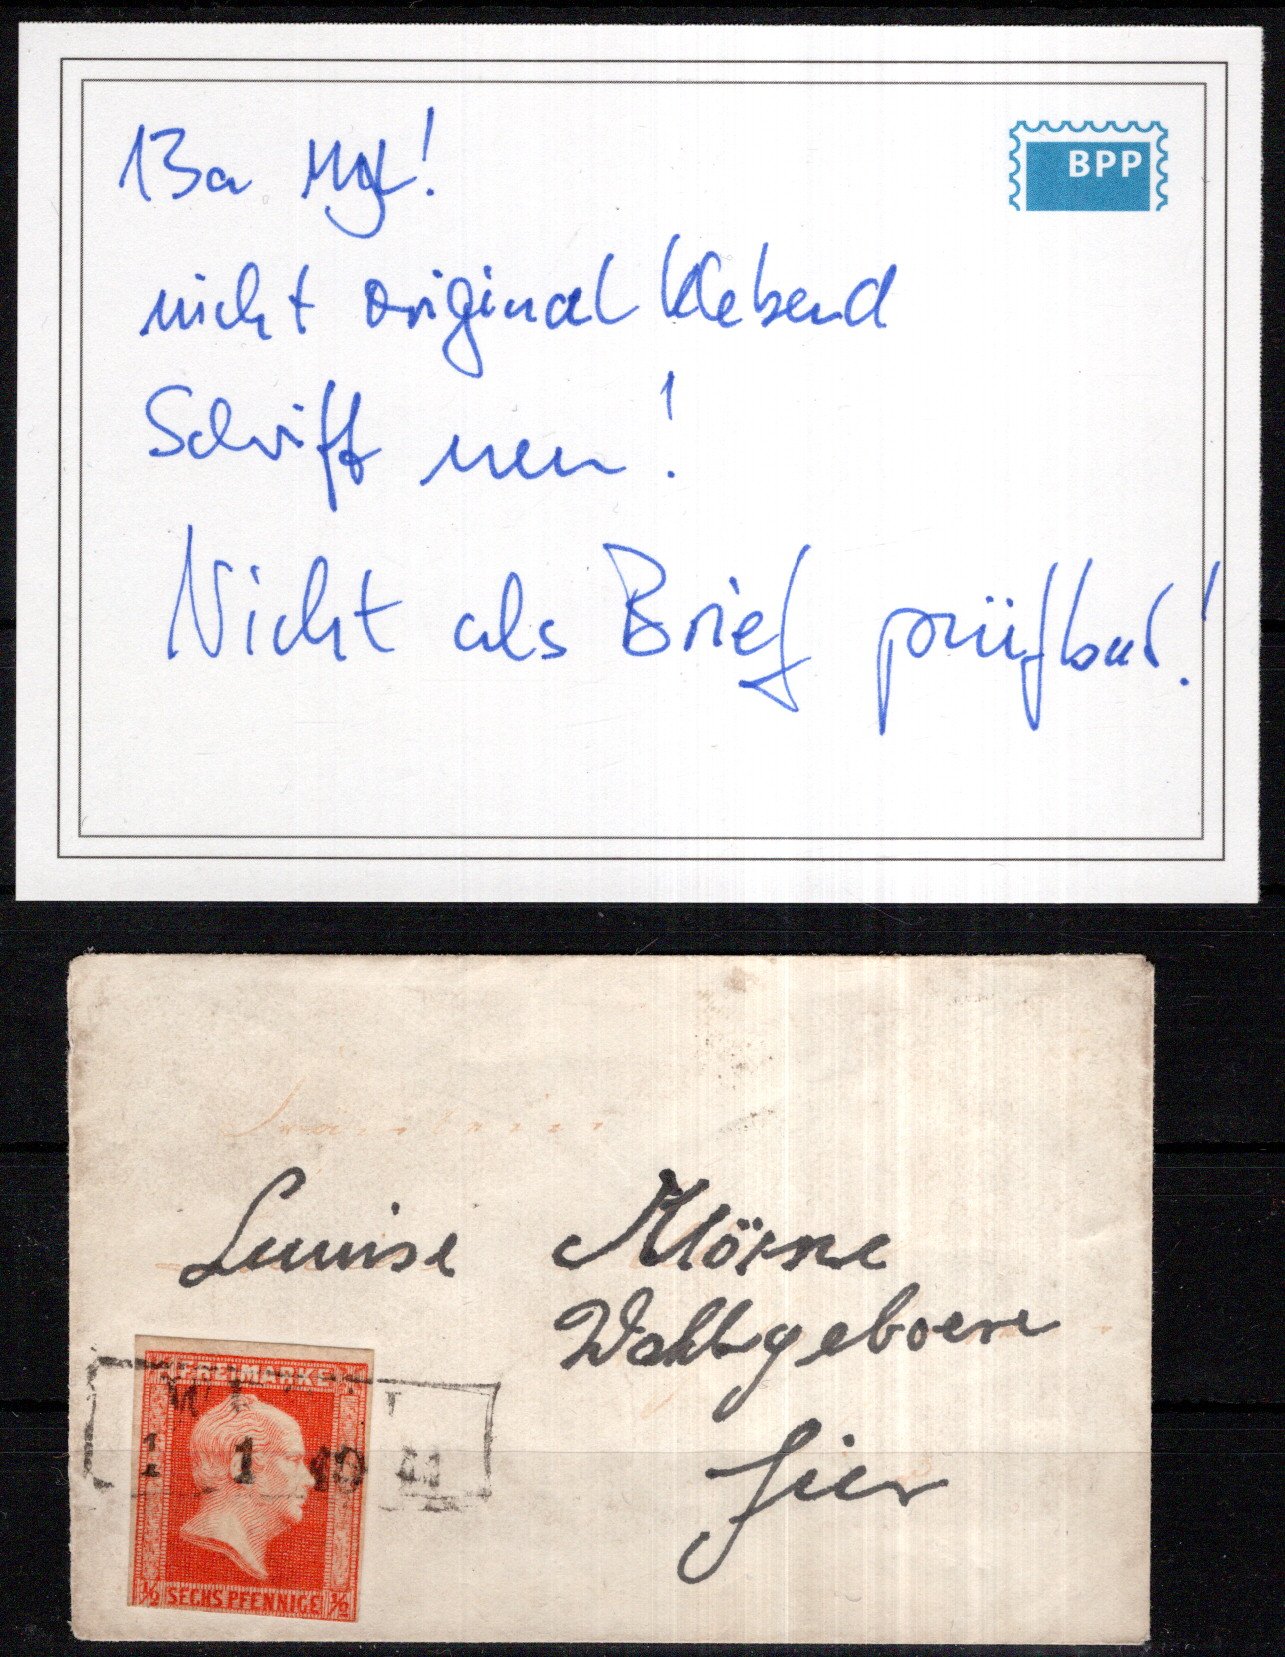 13a Mgl!
BPP
nicht original klebend
Schrift neu!
Nicht als Brief prüfbar!
Luuise Mörne
Wohlgeboere
hier
FREIMARKE
1 1 10
½ SECHS PFENNIGE ½